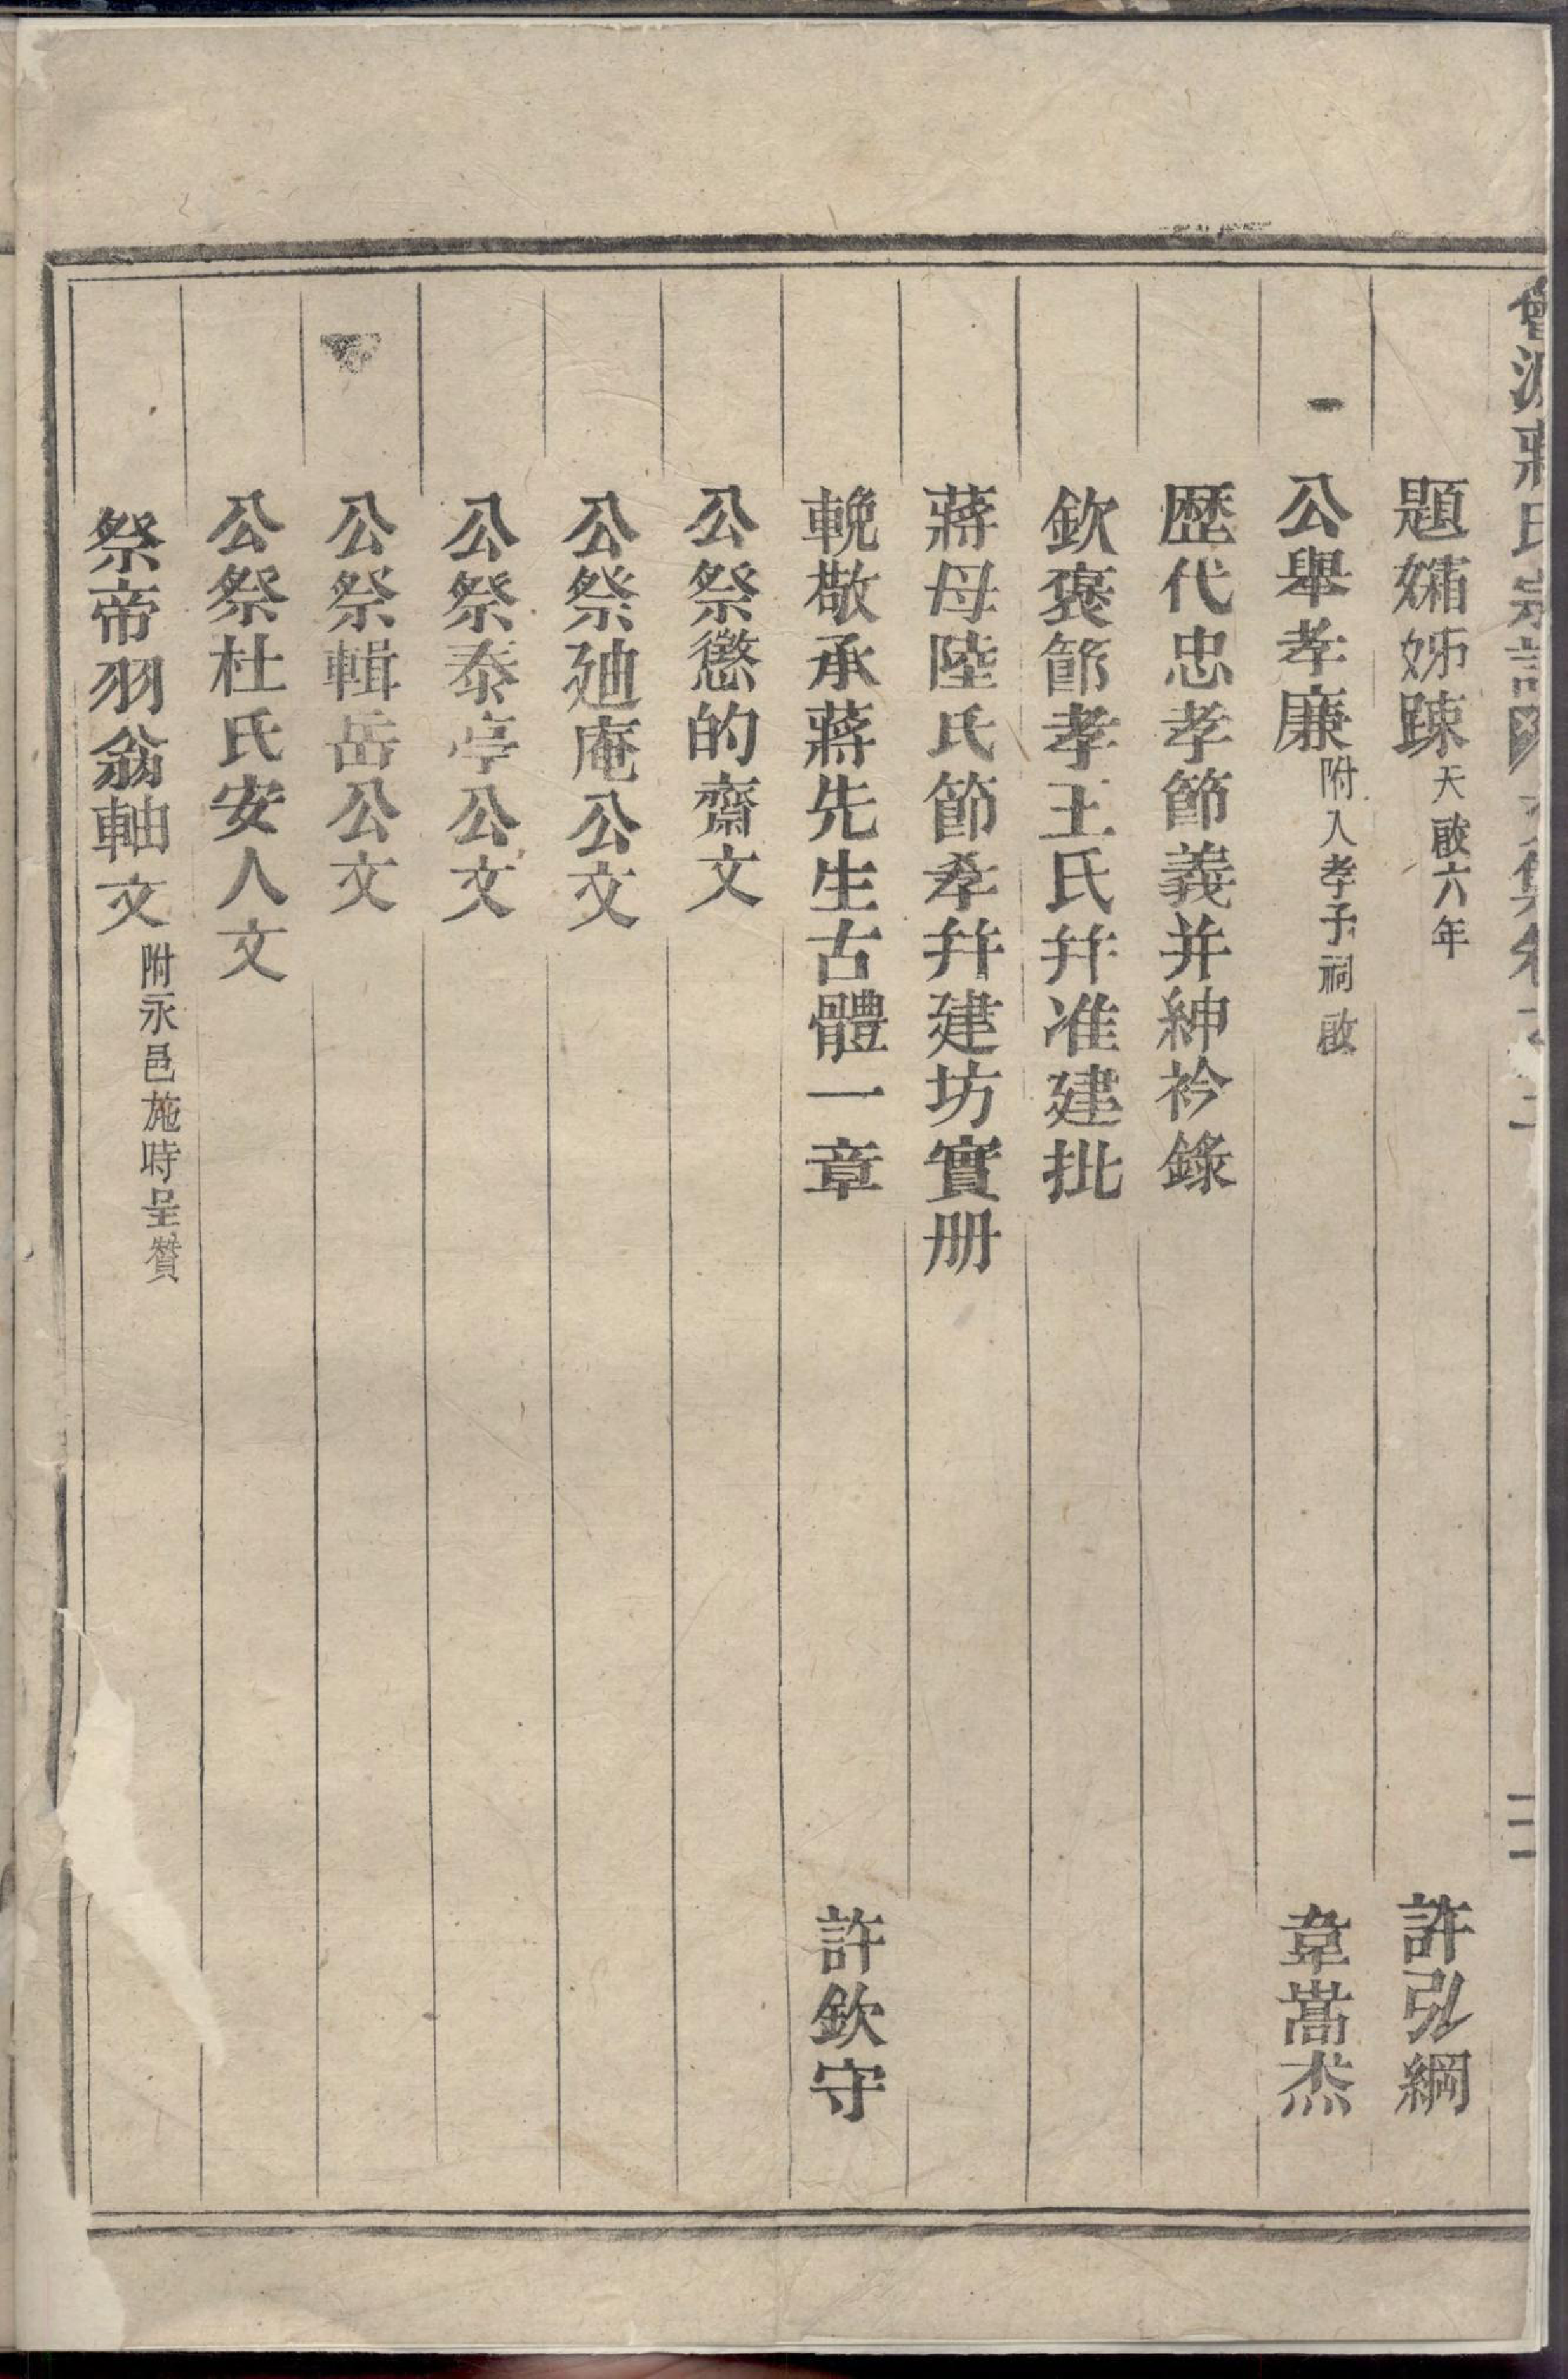 蔣氏宗譜
題孀姊疎 天啟六年 許弘綱
公舉孝廉 附入孝子祠啟 韋嵩杰
歷代忠孝節義并紳衿錄
欽褒節孝王氏幷准建批
蔣母陸氏節孝幷建坊實册
輓敬承蔣先生古體一章 許欽守
公祭懲的齋文
公祭廸庵公文
公祭泰亭公文
公祭輯岳公文
公祭杜氏安人文
祭帝羽翁軸文 附永邑施時呈贊